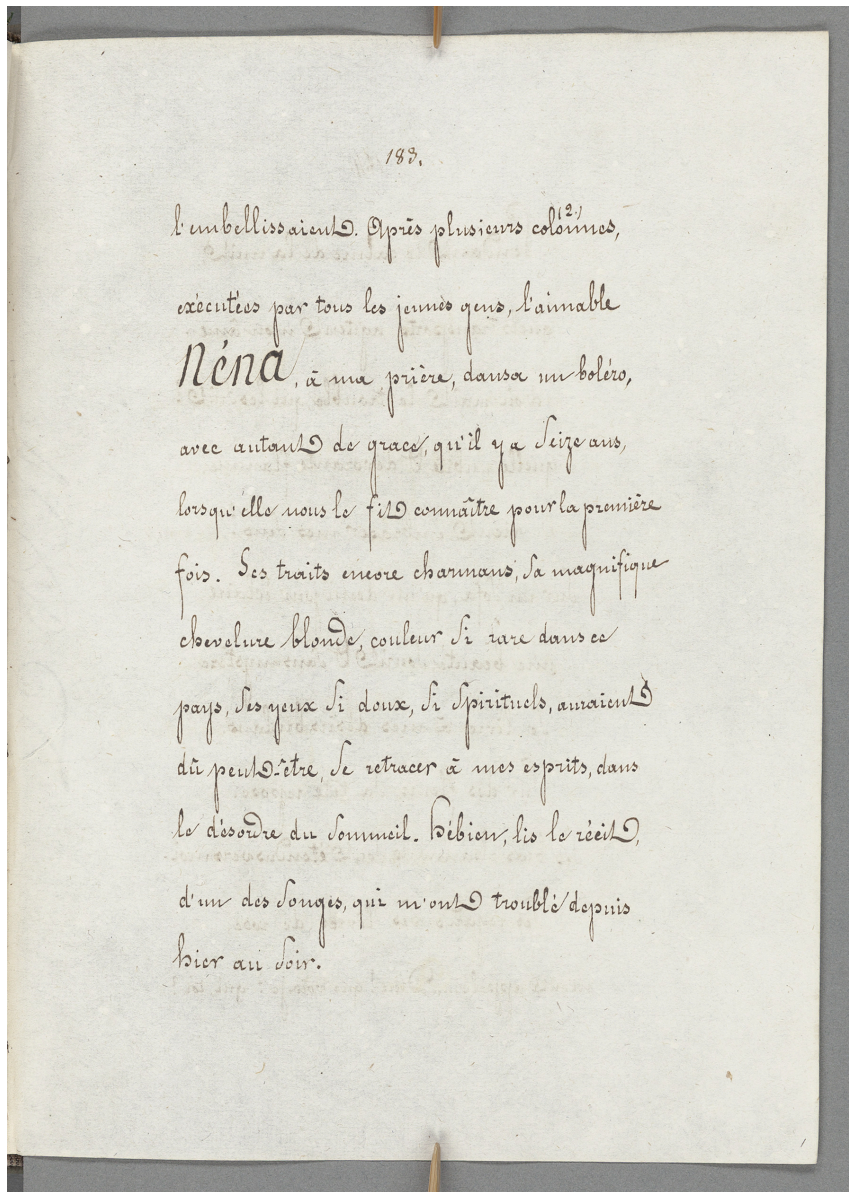 183.
l'embellissaient. Après plusieurs colonnes, (2.)
exécutées par tous les jeunes gens, l'aimable
Néna, à ma prière, dansa un boléro,
avec autant de grace, qu'il y a seize ans,
lorsqu'elle nous le fit connaître pour la première
fois. Ses traits encore charmans, sa magnifique
chevelure blonde, couleur si rare dans ce
pays, ses yeux si doux, si spirituels, auraient
dû peut-être, se retracer à mes esprits, dans
le désordre du sommeil. Hébien, lis le récit,
d'un des songes, qui m'ont troublé depuis
hier au soir.